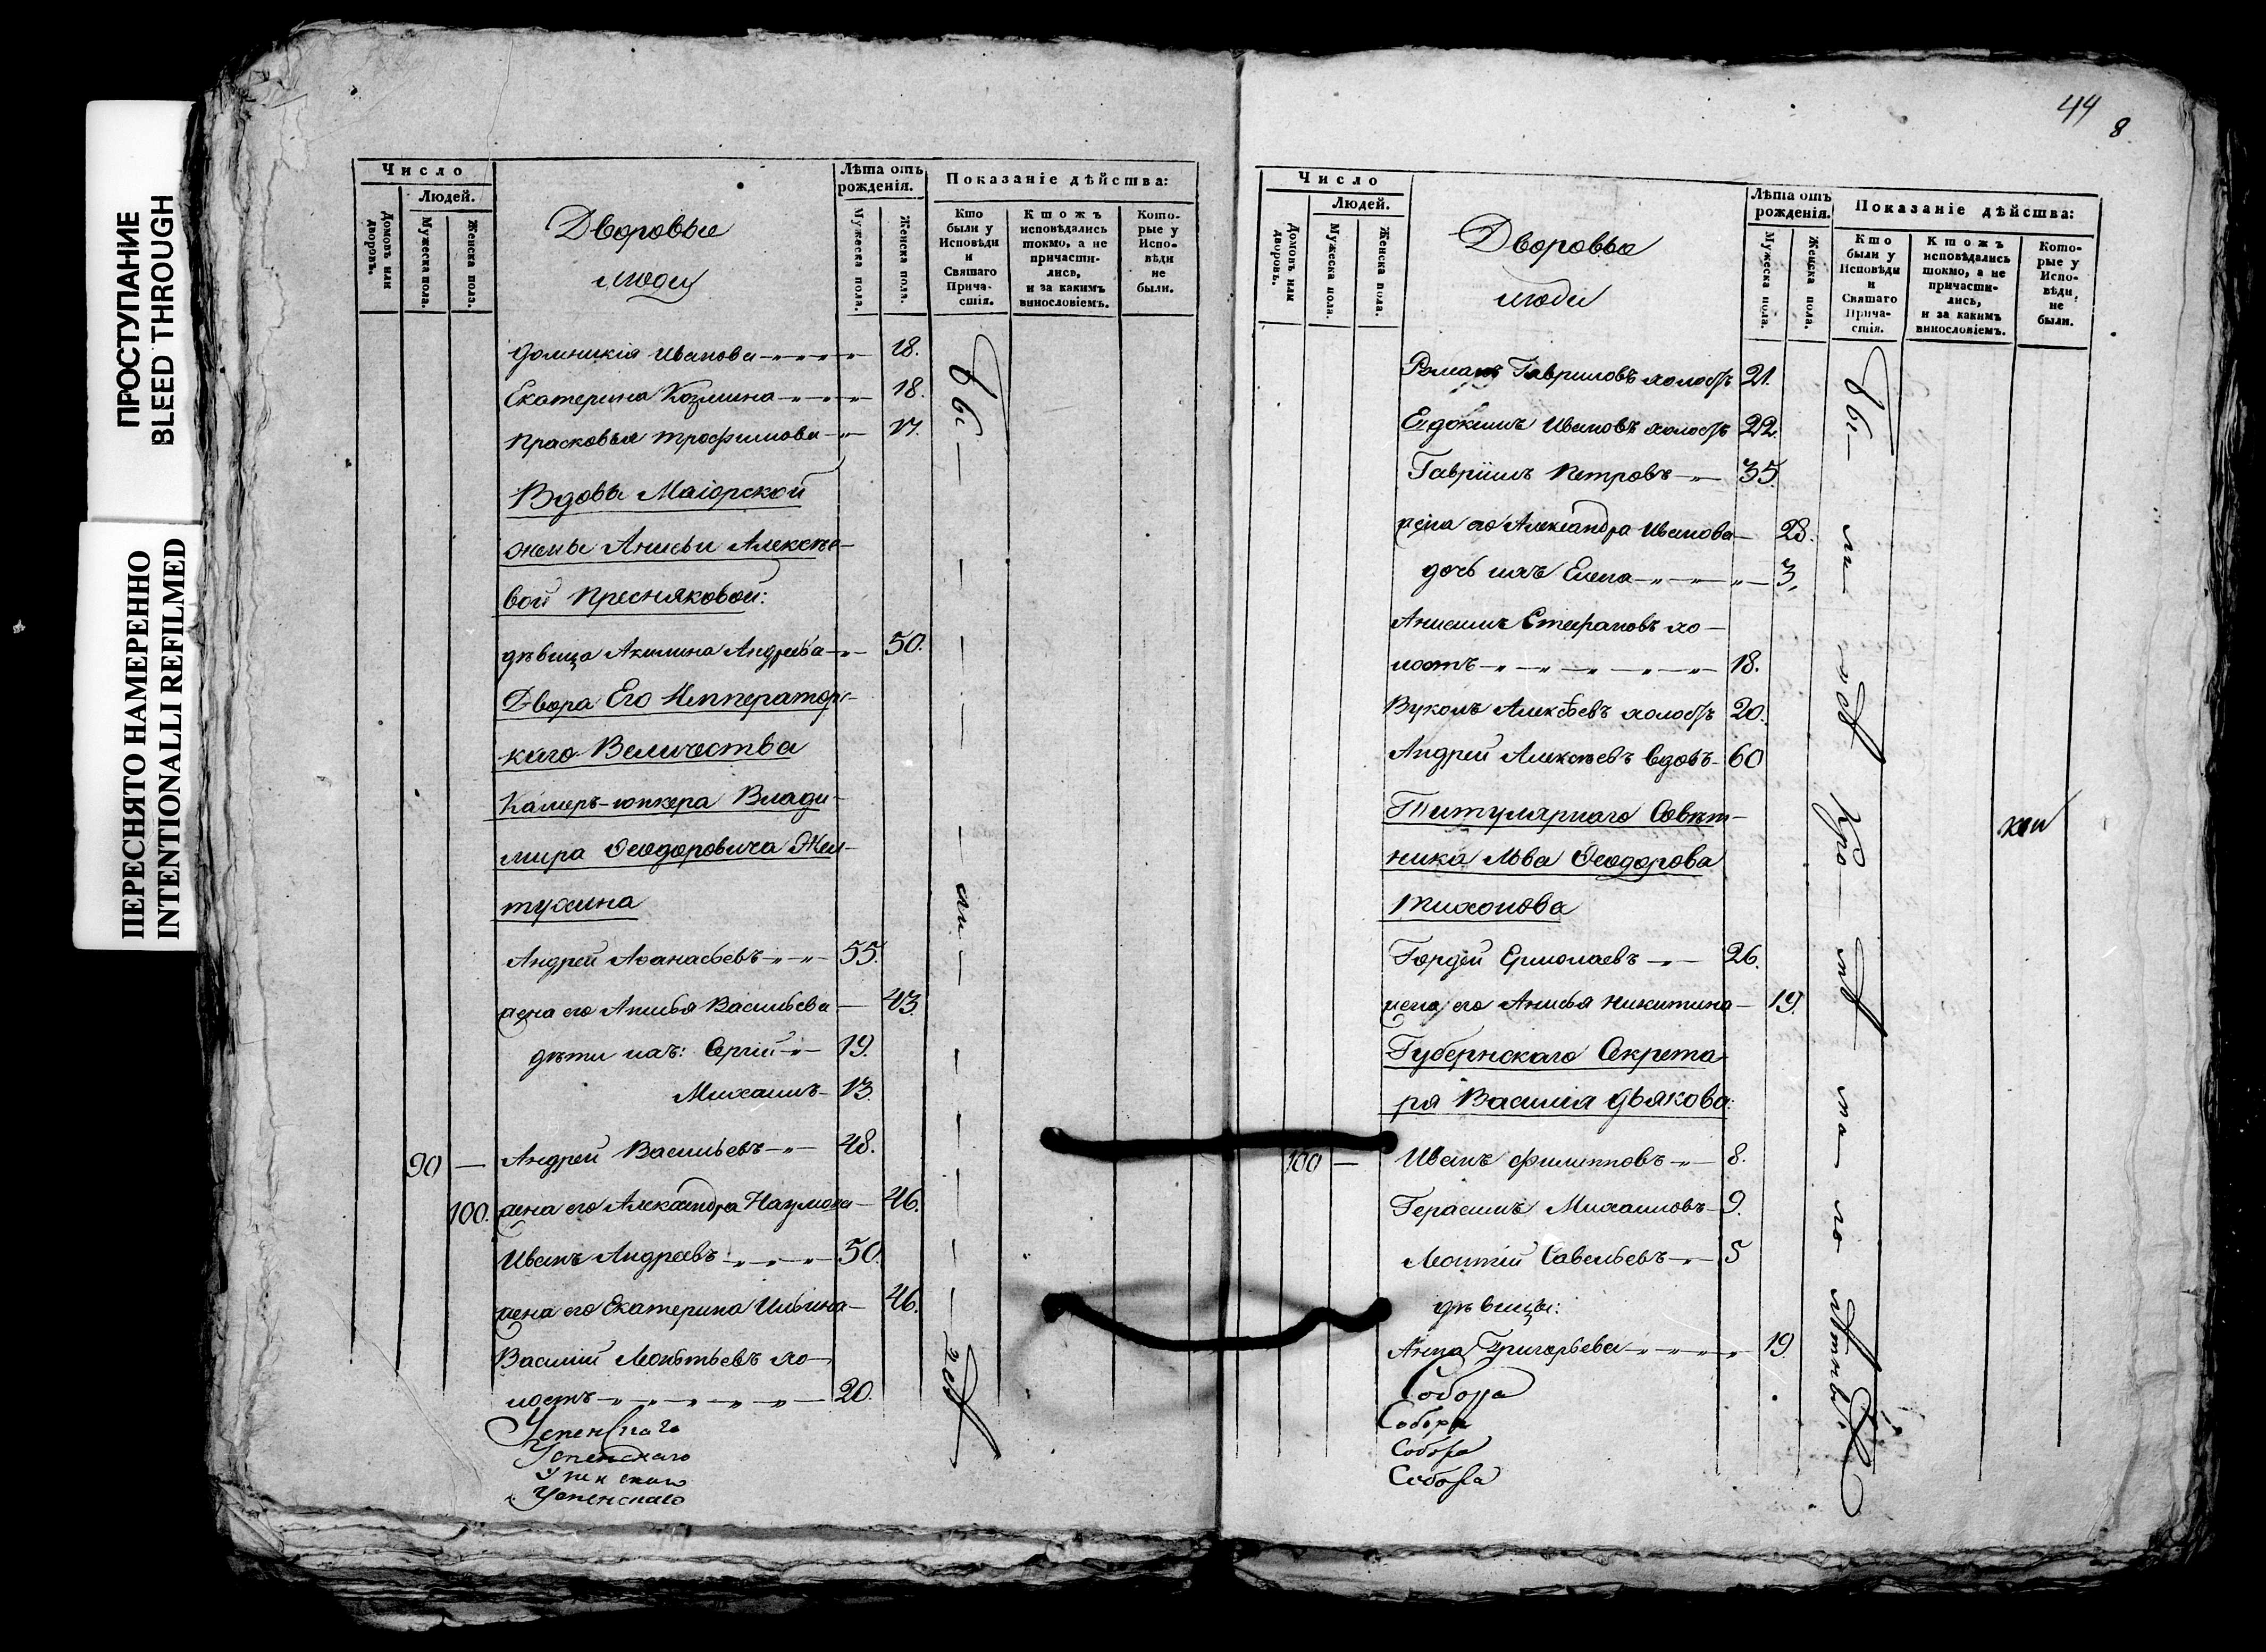 ПРОСТУПАНИЕ
BLEED THROUGH
ПЕРЕСНЯТО НАМЕРЕННО
INTENTIONALLI REFILMED
Число
Людей.
Домовъ или дворовъ.
Мужеска пола.
Женска пола.
Дворовые
люди
Лѣта отъ рожденія.
Мужеска пола.
Женска пола.
Показаніе дѣйства:
Кто были у Исповѣди и Святаго Причастія.
Ктожъ исповѣдались токмо, а не причастились, и за какимъ винословіемъ.
Которые у Исповѣди не были.
Домникія Иванова 18.
Екатерина Козмина 18.
Прасковья Трофимова 17.
Вдовы Маіорской
жены Анисьи Алексѣе-
вой Пресняковой:
дѣвица Акилина Андреева 50.
Двора Его Император-
каго Величества
Камеръ-юнкера Влади-
мира Ѳеодоровича Жел-
тухина
Андрей Аѳанасьевъ 55.
жена его Анисья Васильева 43.
дѣти ихъ: Сергій 19.
Михаилъ 13.
90 — Андрей Васильевъ 48.
100. жена его Александра Наумова 46.
Иванъ Андреевъ 50.
жена его Екатерина Ильина 46.
Василій Леонтьевъ хо-
лостъ 20.
Успенскаго
Успенскаго
Успенскаго
Успенскаго
бы — ли
44
8
Число
Людей.
Домовъ или дворовъ.
Мужеска пола.
Женска пола.
Дворовые
люди
Лѣта отъ рожденія.
Мужеска пола.
Женска пола.
Показаніе дѣйства:
Кто были у Исповѣди и Святаго Причастія.
Ктожъ исповѣдались токмо, а не причастились, и за какимъ винословіемъ.
Которые у Исповѣди не были.
Романъ Гавриловъ холостъ 21.
Евдокимъ Ивановъ холостъ 22.
Гавріилъ Петровъ 35.
жена его Александра Иванова 28.
дочь ихъ Елена 3.
Анисимъ Стефановъ хо-
лостъ 18.
Вуколъ Алексѣевъ холостъ 20.
Андрей Алексѣевъ вдовъ 60
Титулярнаго Совѣт-
ника Льва Ѳеодорова
Тихонова
Гордѣй Ермолаевъ 26.
жена его Анисья Никитина 19.
Губернскаго Секрета-
ря Василія Дьякова:
100 — Иванъ Филипповъ 8.
Герасимъ Михаиловъ 9.
Леонтій Савельевъ 5
дѣвицы:
Анна Григорьева 19.
Собора
Собора
Собора
Собора
бы — ли